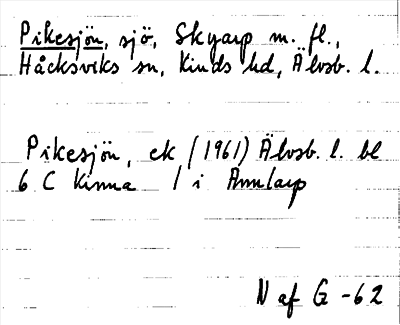 Pikesjön, sjö, Skyarp m. fl.,
Håcksviks sn, Kinds hd, Älvsb. l.
Pikesjön, ek (1961) Älvsb. l. bl
6 C Kinna / i Annlarp
N af G -62